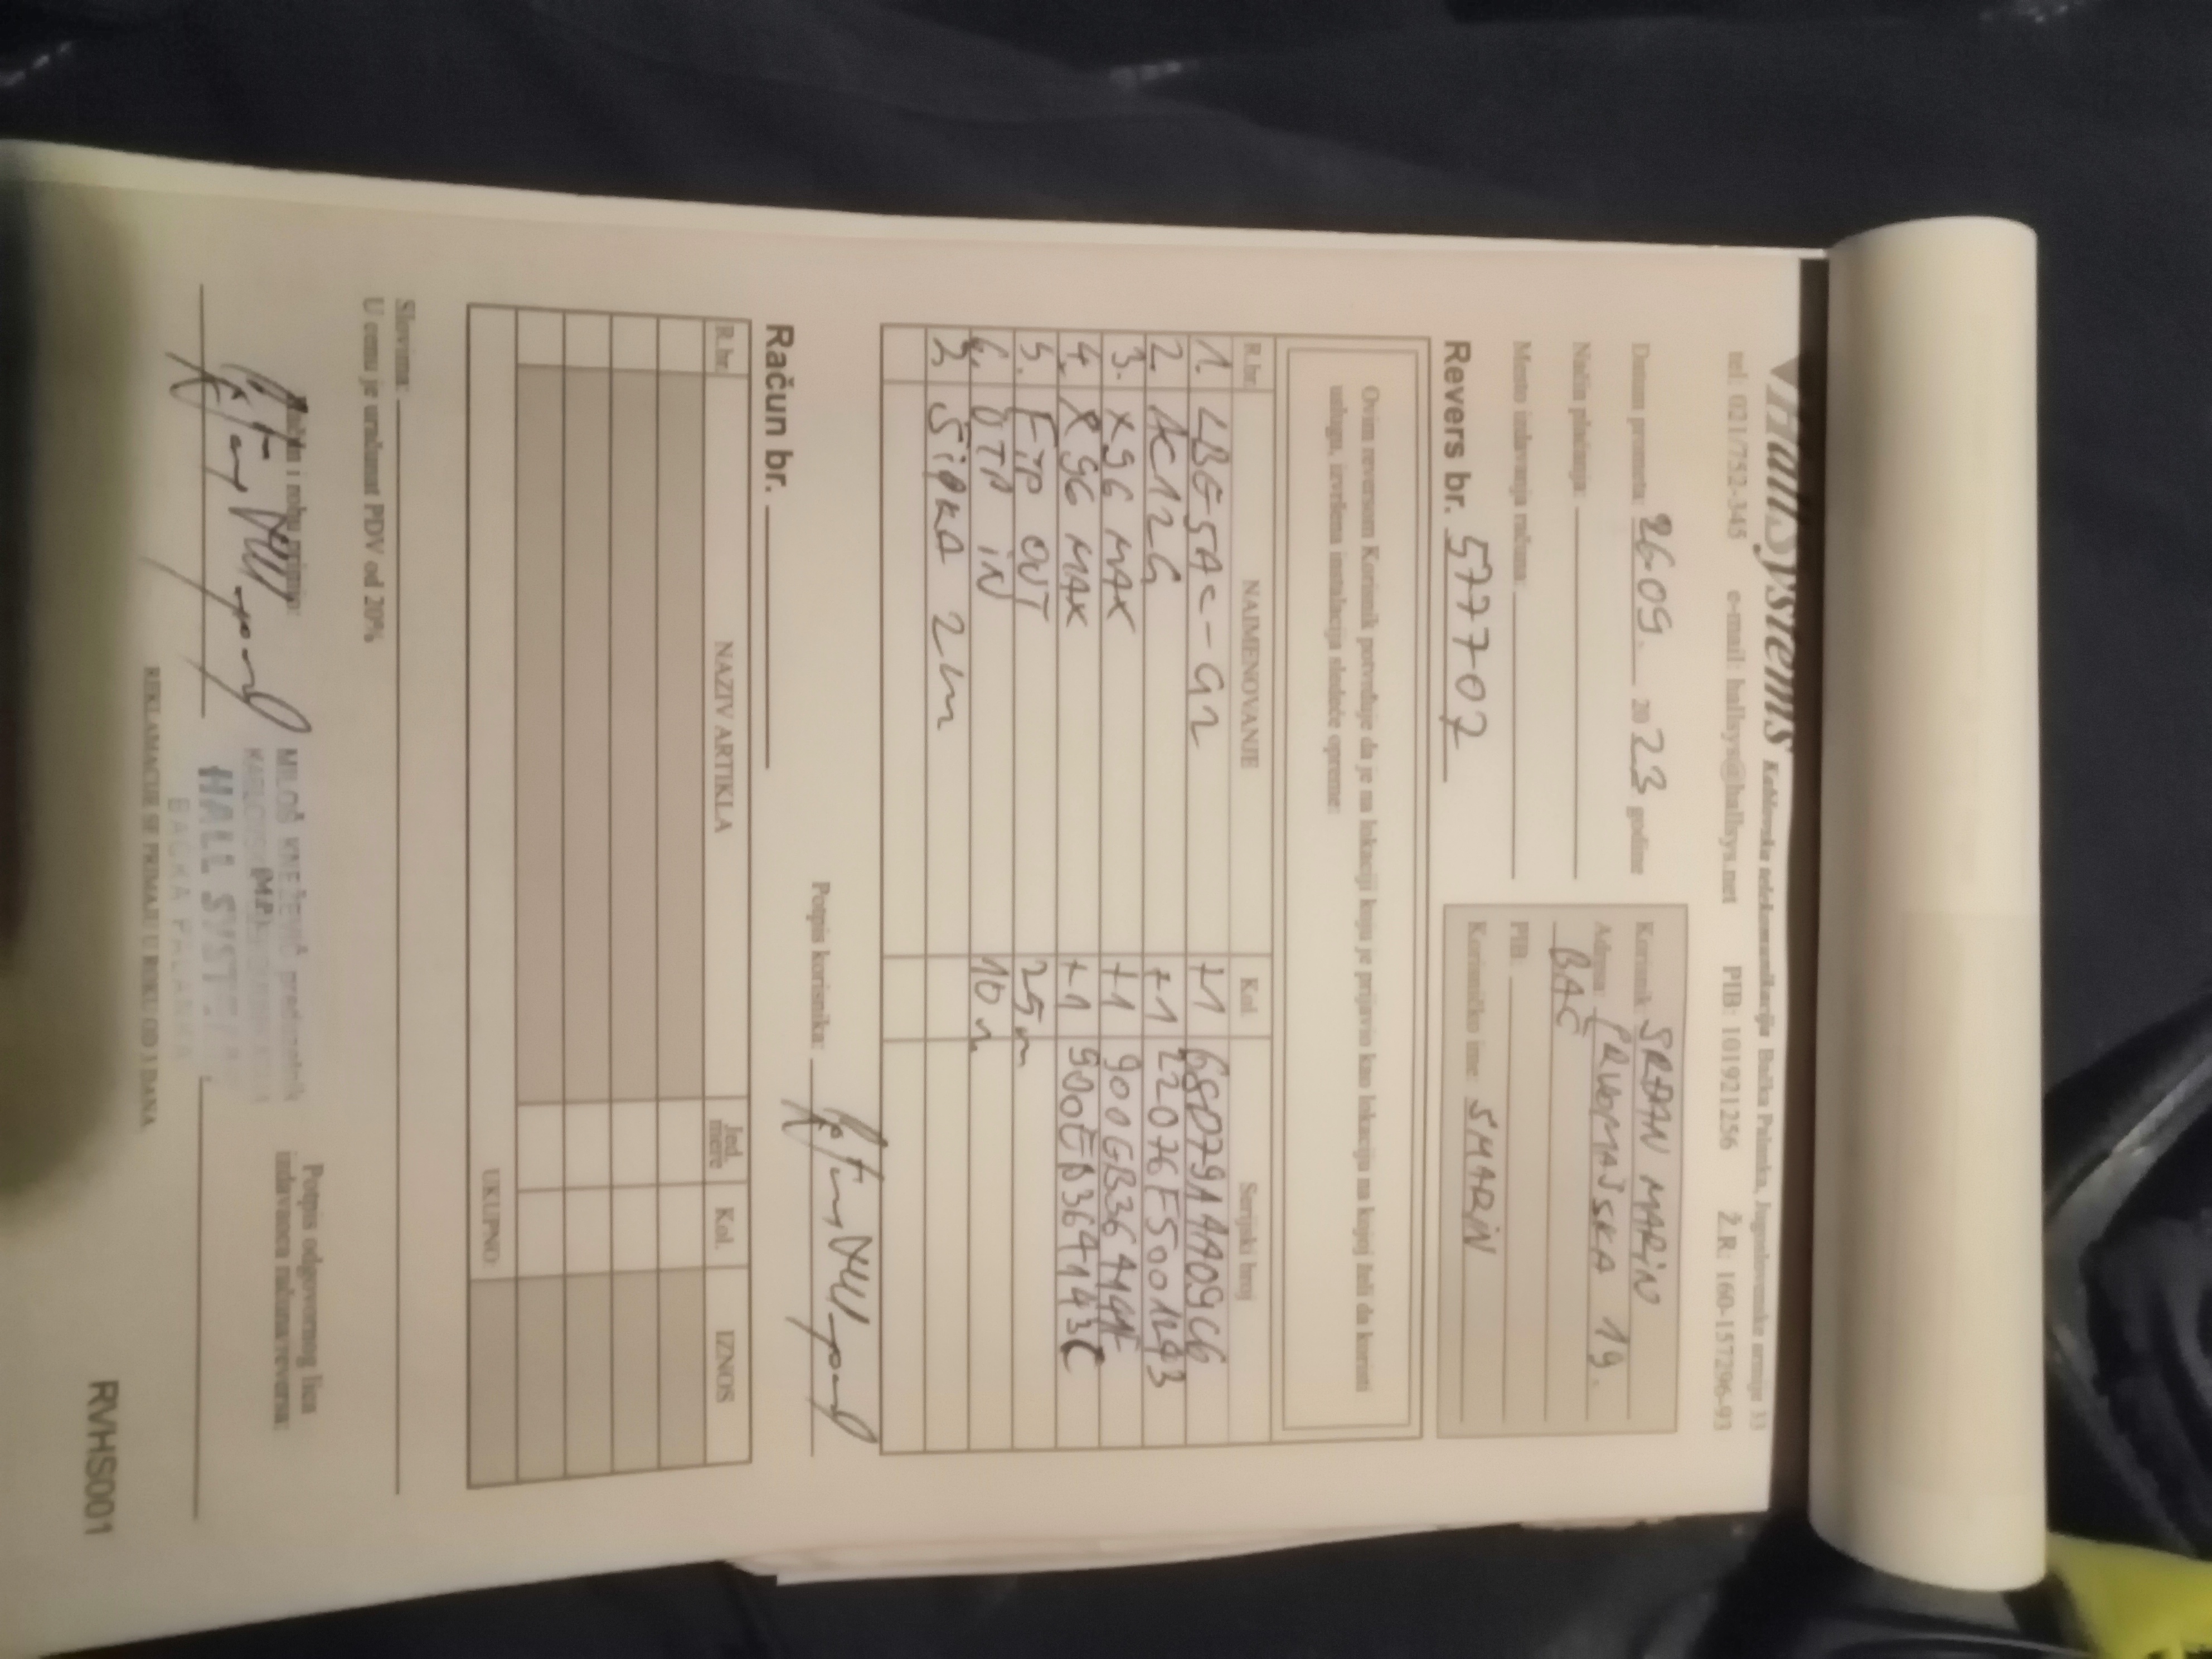 HallSystems Kablovske telekomunikacije Bačka Palanka, Jugoslovenske armije 33
tel: 021/752-345 e-mail: hallsys@hallsys.net PIB: 101921256 Ž.R.: 160-157296-93
Datum prometa: 26.09. 20 23 godine
Način plaćanja:
Mesto izdavanja računa:
Korisnik: SRĐAN MARIN
Adresa: PRVOMAJSKA 19.
BAČ
PIB:
Korisničko ime: SMARIN
Revers br. 577707
Ovim reversom Korisnik potvrđuje da je na lokaciji koju je prijavio kao lokaciju na kojoj želi da koristi
uslugu, izvršena instalacija sledeće opreme:
R.br. NAIMENOVANJE Kol. Serijski broj
1. LBE-5AC-G2 +1 68D79AAA09C6
2. AC12G +1 22076F5001293
3. X96 MAX +1
4. X96 MAX +1 900EB364143C
5. FTP OUT 25m
6. UTP IN 10m
7. ŠIPKA 2m
Potpis korisnika:
Račun br.
R.br. NAZIV ARTIKLA Jed. mere Kol. IZNOS
UKUPNO:
Slovima:
U cenu je uračunat PDV od 20%
i robu primio:
(M.P.)
Potpis odgovornog lica
izdavaoca računa/reversa:
MILOŠ KNEŽEVIĆ preduzetnik
HALL SYSTEMS
BAČKA PALANKA
REKLAMACIJE SE PRIMAJU U ROKU OD 3 DANA
RVHS001